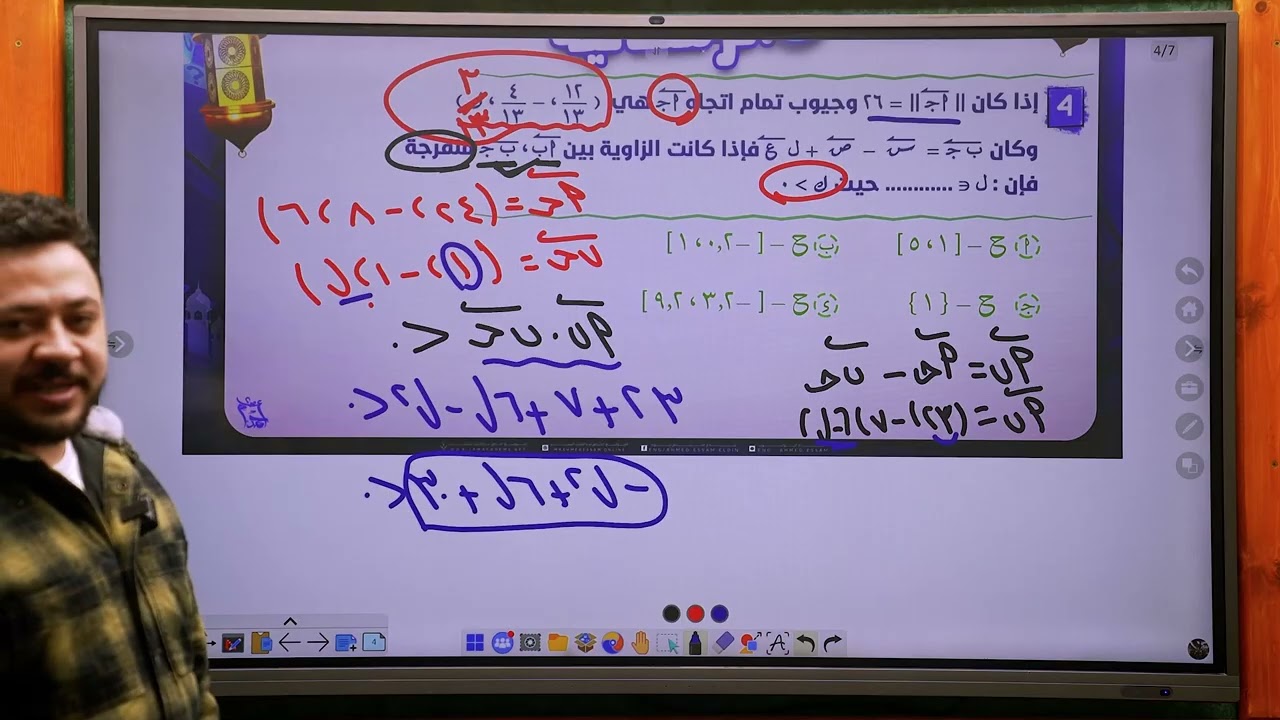 4/7
4 إذا كان || أجـ || = ٢٦ وجيوب تمام اتجاه أجـ هي ( ١٢/١٣ ، − ٤/١٣ ، ك) ٣/١٣
وكان بَ جـ = سَ − صَ + ل عَ فإذا كانت الزاوية بين أب ، ب جـ منفرجة
فإن : ل ∈ ............ حيث ك > ٠
أ ح − [١ ، ٥] ب ح − [−٢, ٠ ، ١]
جـ ح − {١} د ح − [−٣,٢ ، ٩,٢]
أجـ = (٢٤ ، −٨ ، ٦)
ب جـ = (١ ، −١ ، ل)
أب · ب جـ < ٠
أب = أجـ − ب جـ
٢٣ + ٧ + ٦ل − ل٢ < ٠
أب = (٢٣ ، −٧ ، ٦−ل)
− ل٢ + ٦ل + ٣٠ < ٠
4
A